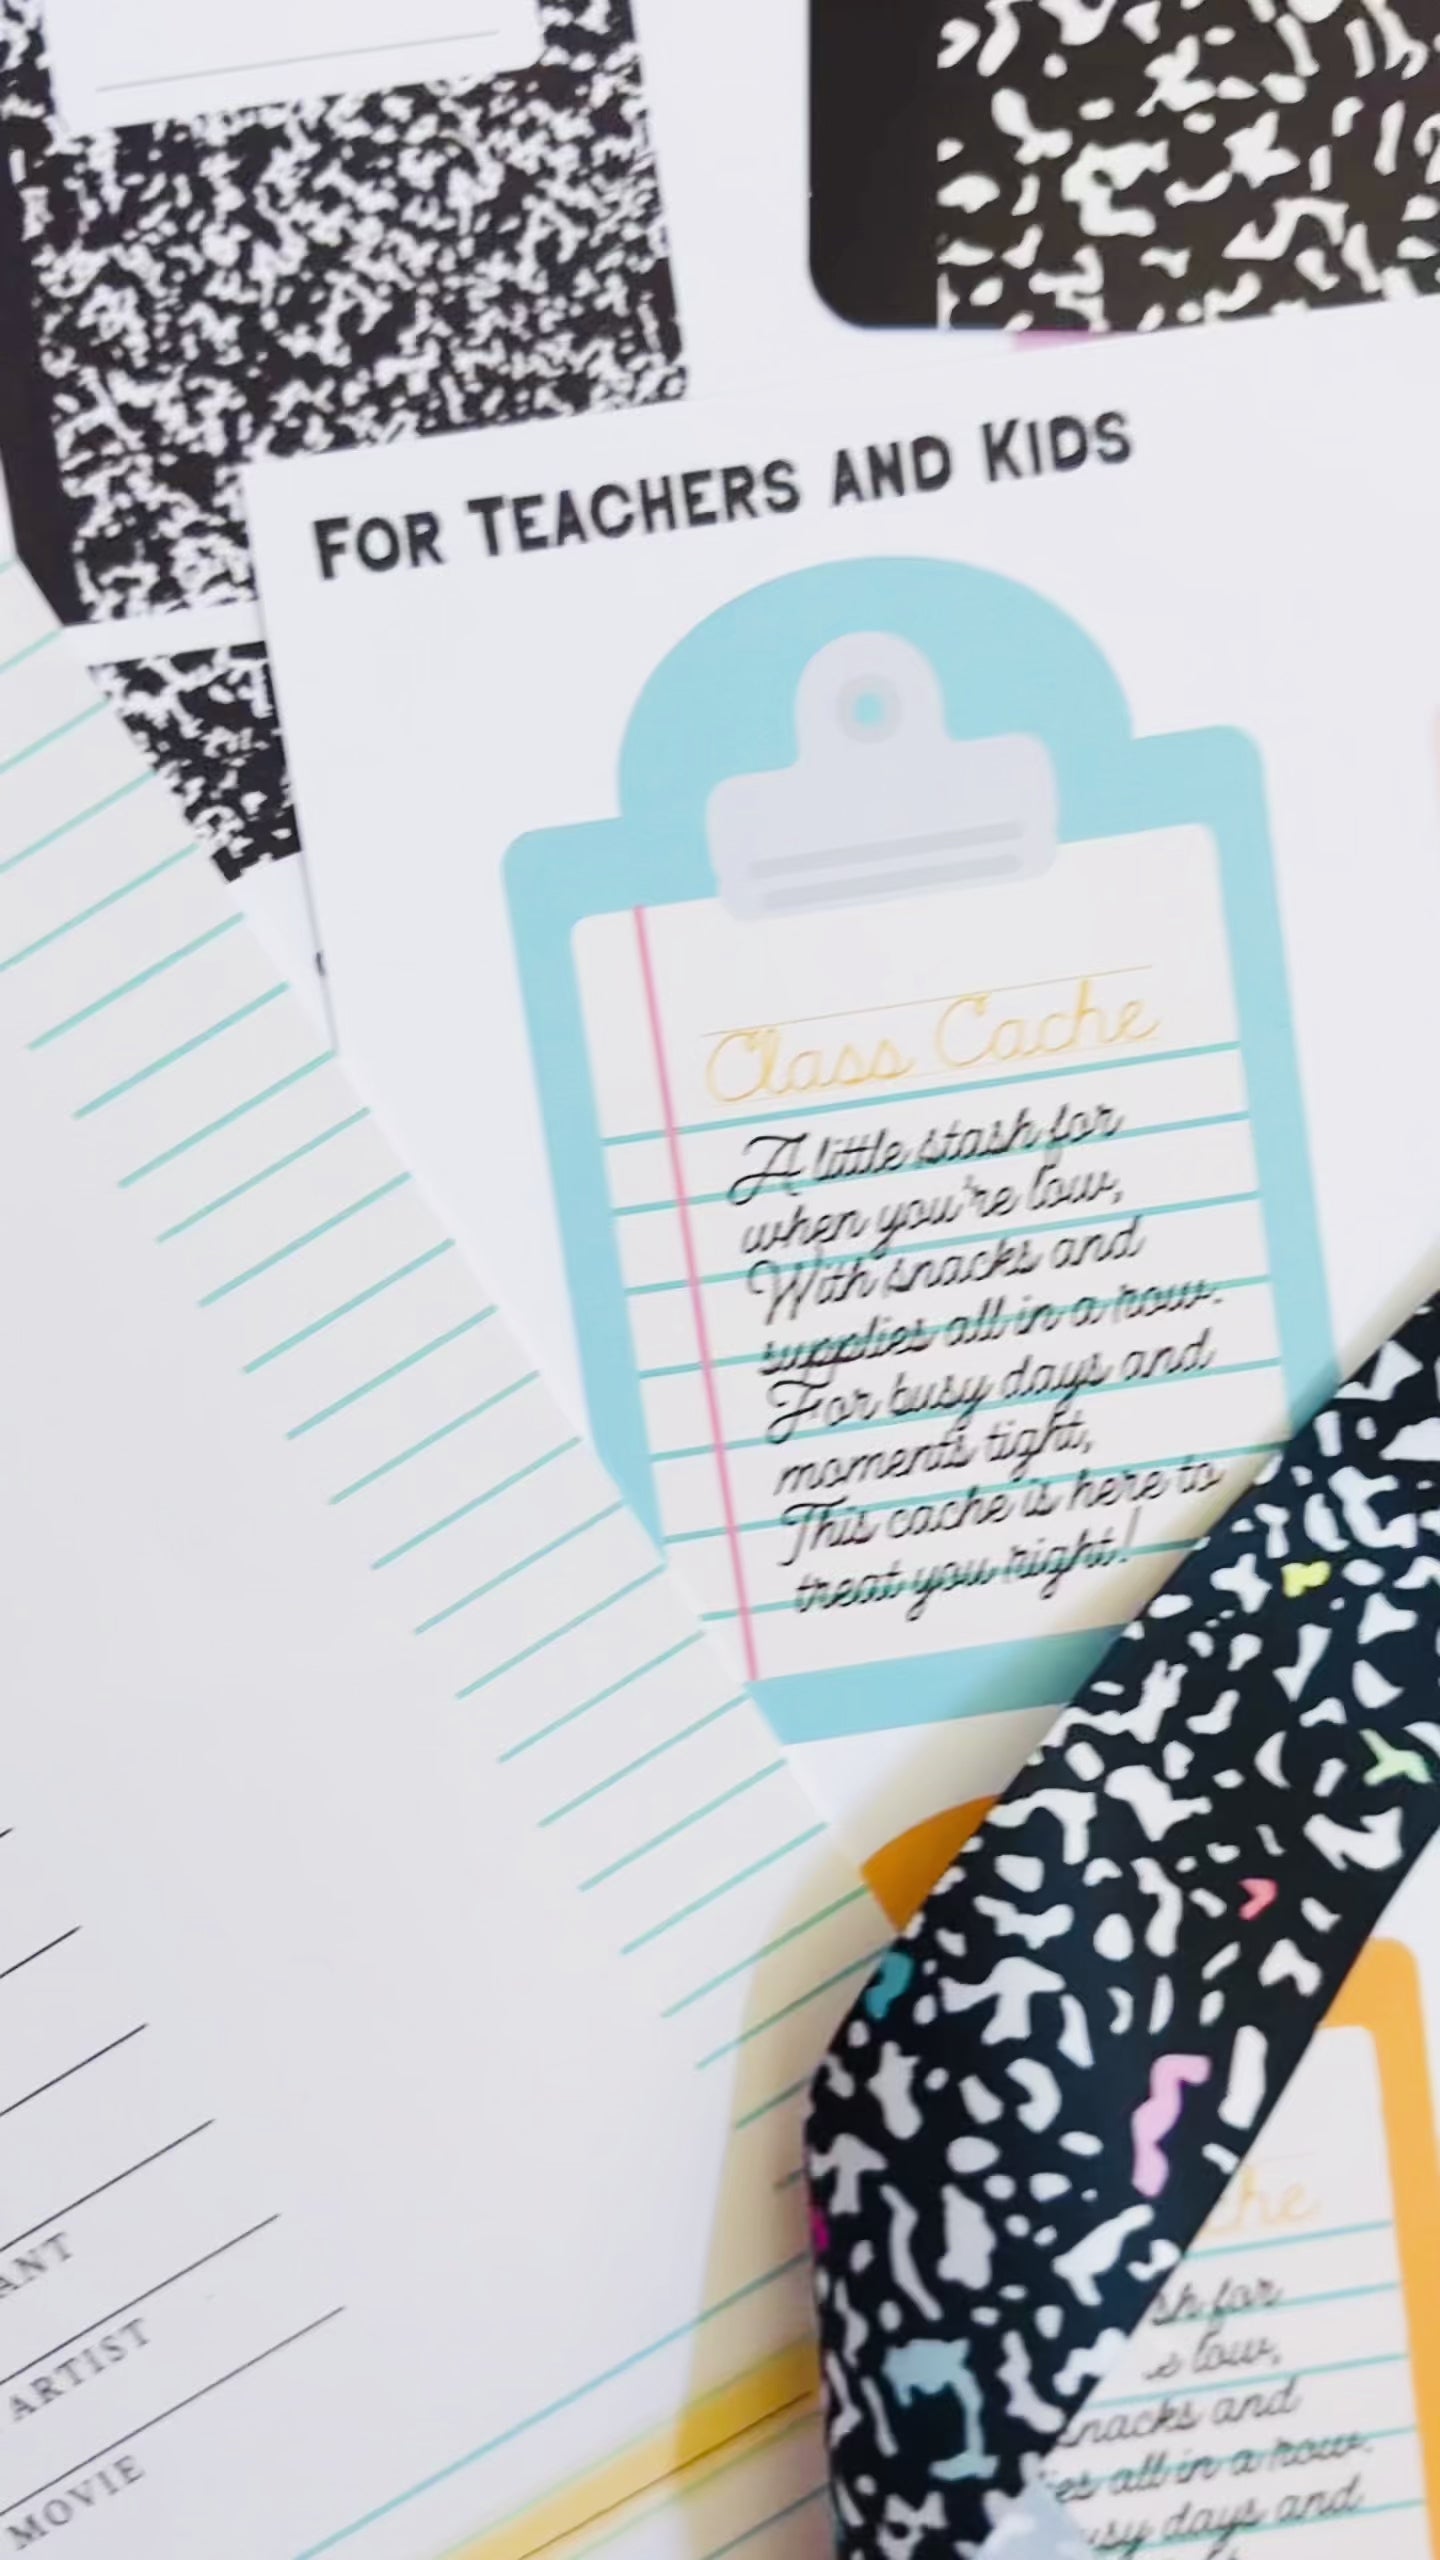 For Teachers and Kids
Class Cache
A little stash for
when you're low,
With snacks and
supplies all in a row.
For busy days and
moments tight,
This cache is here to
treat you right!
ARTIST
MOVIE
for
low,
snacks and
all in a row.
days and